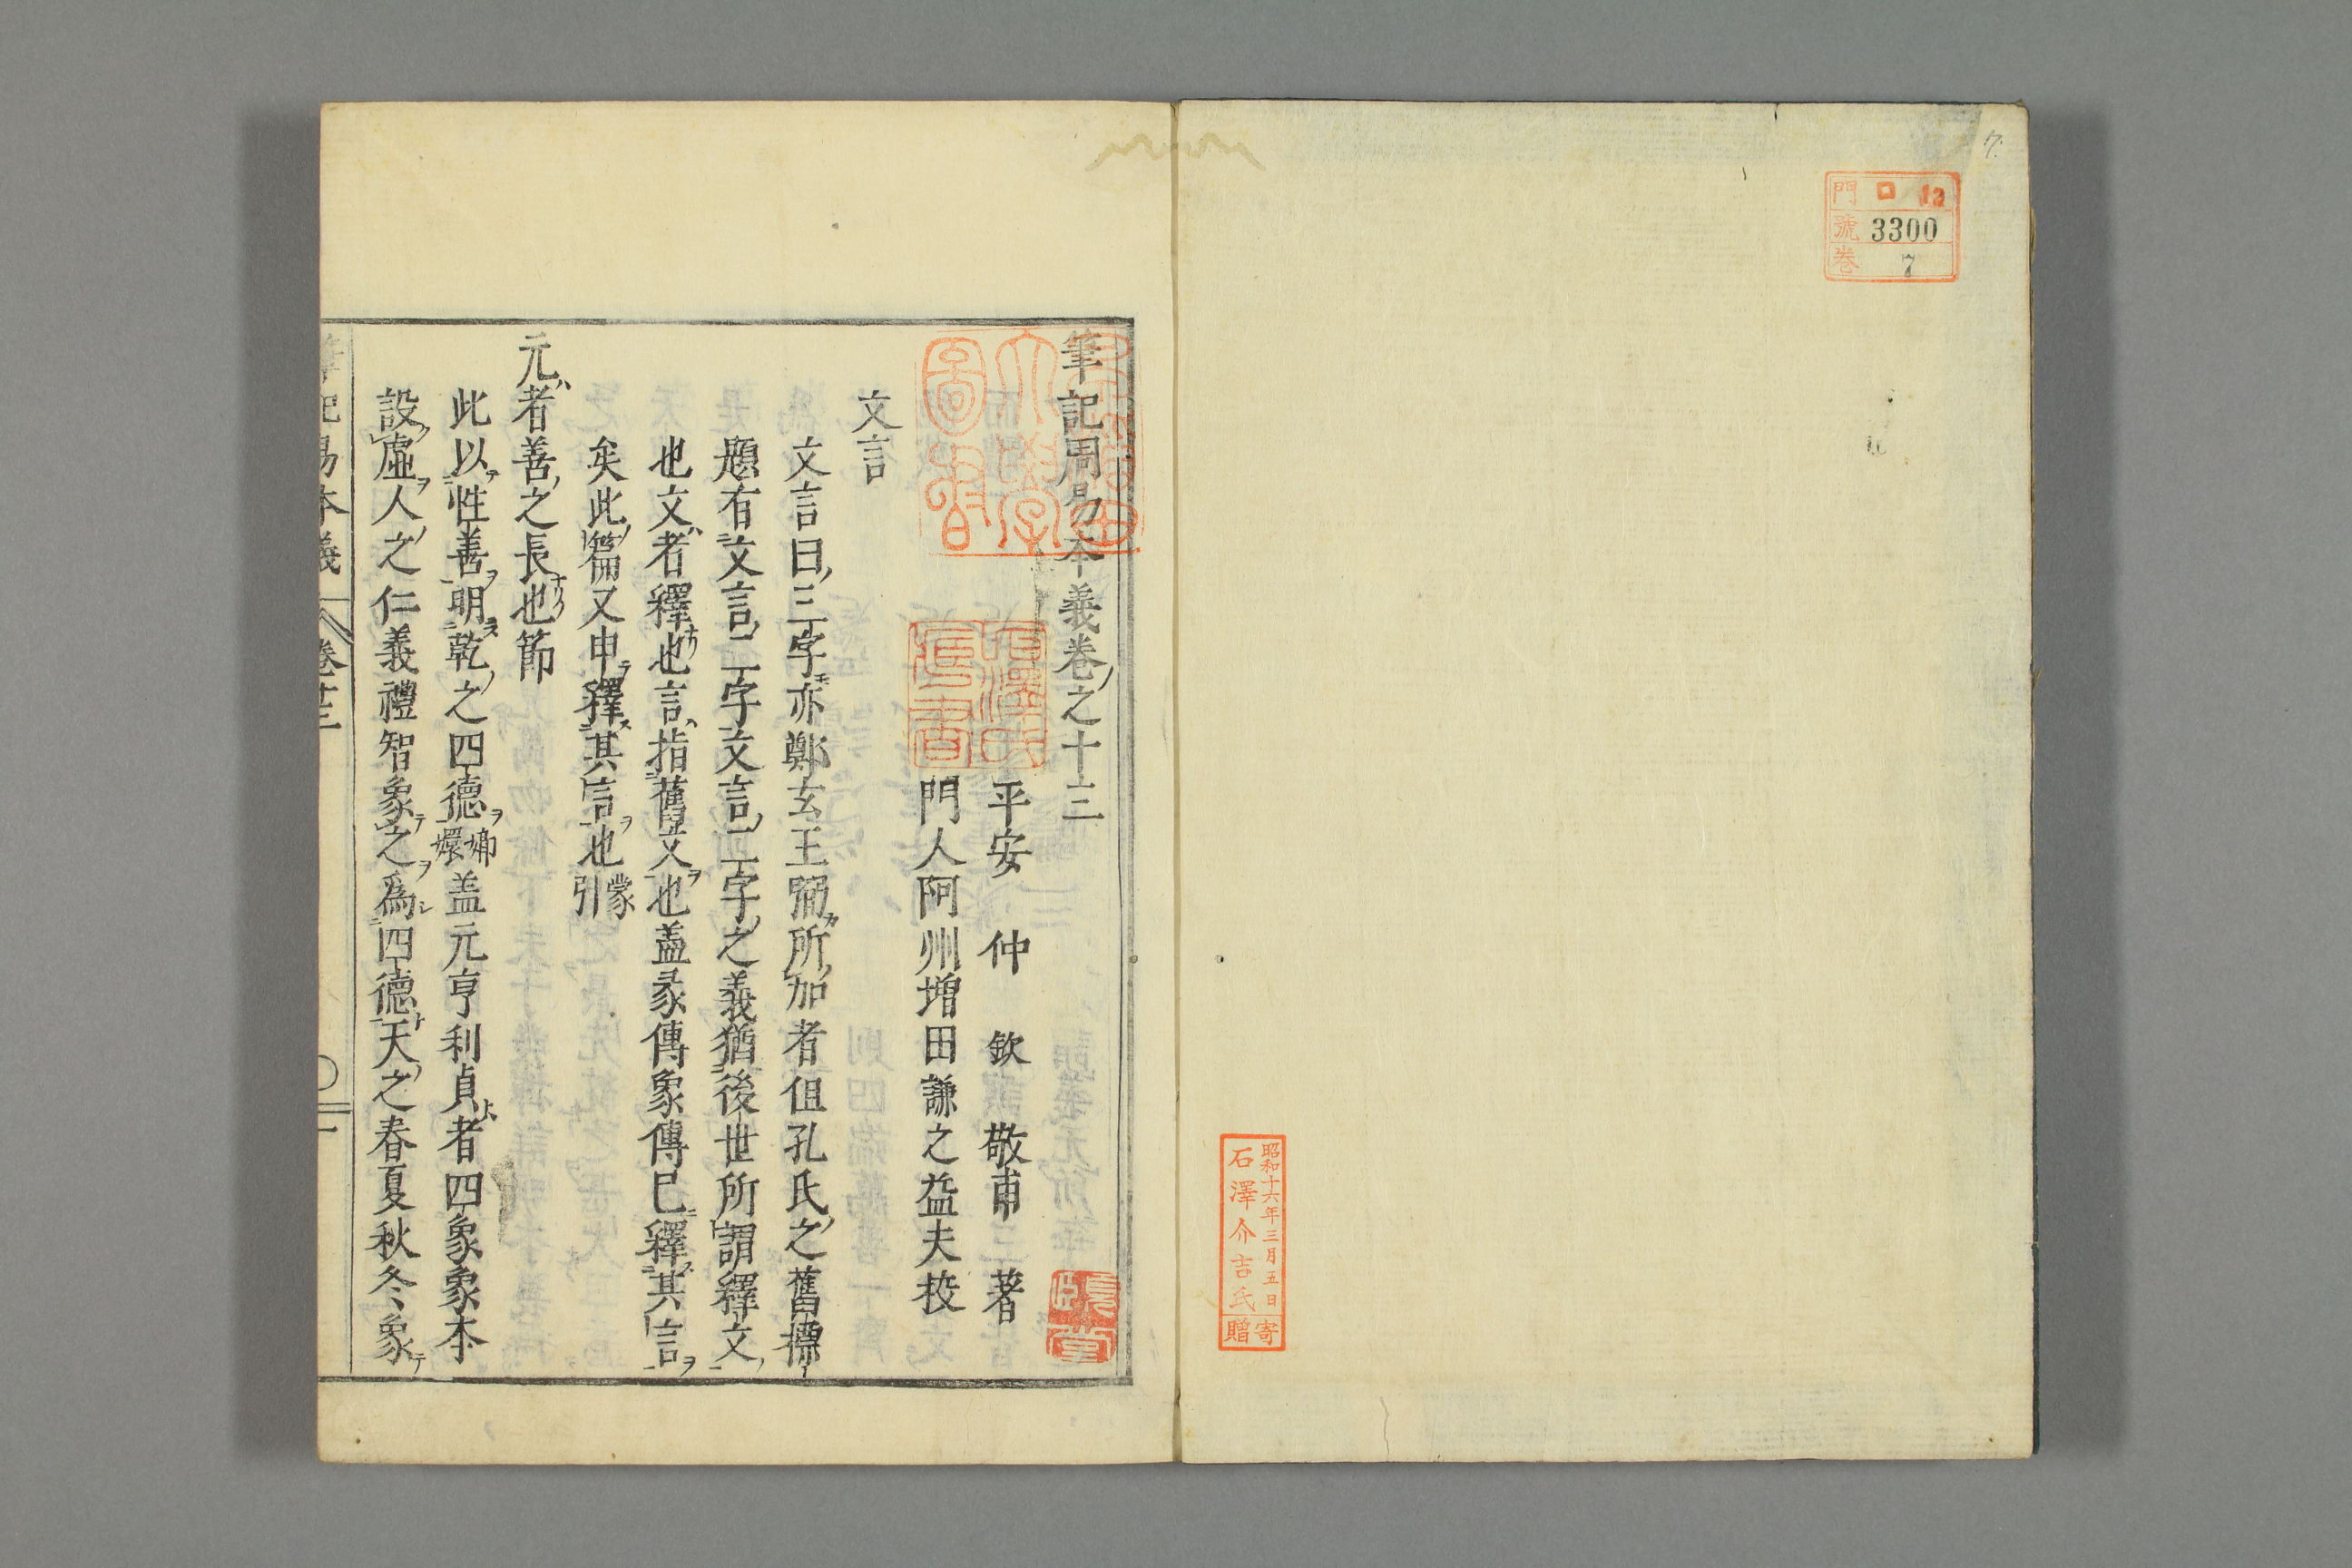 7.
門 ロ 12
號 3300
卷 7
昭和十六年三月五日
石澤介吉氏
寄贈
早稲田大學圖書
筆記周易本義卷之十三
平安 仲 欽 敬甫 著
門人阿州增田謙之益夫挍
文言
文言曰三字亦鄭玄王弼所加者但孔氏之舊標
題有文言二字文言二字之義猶後世所謂釋文
也文者釋也言指舊文也蓋彖傳象傳已釋其言
矣此篇又申釋其言也蒙引
元者善之長也節
此以性善明乾之四德嫏嬛盖元亨利貞者四象象本
設虛人之仁義禮智象之爲四德天之春夏秋冬象
筆記易本義 卷十三 一